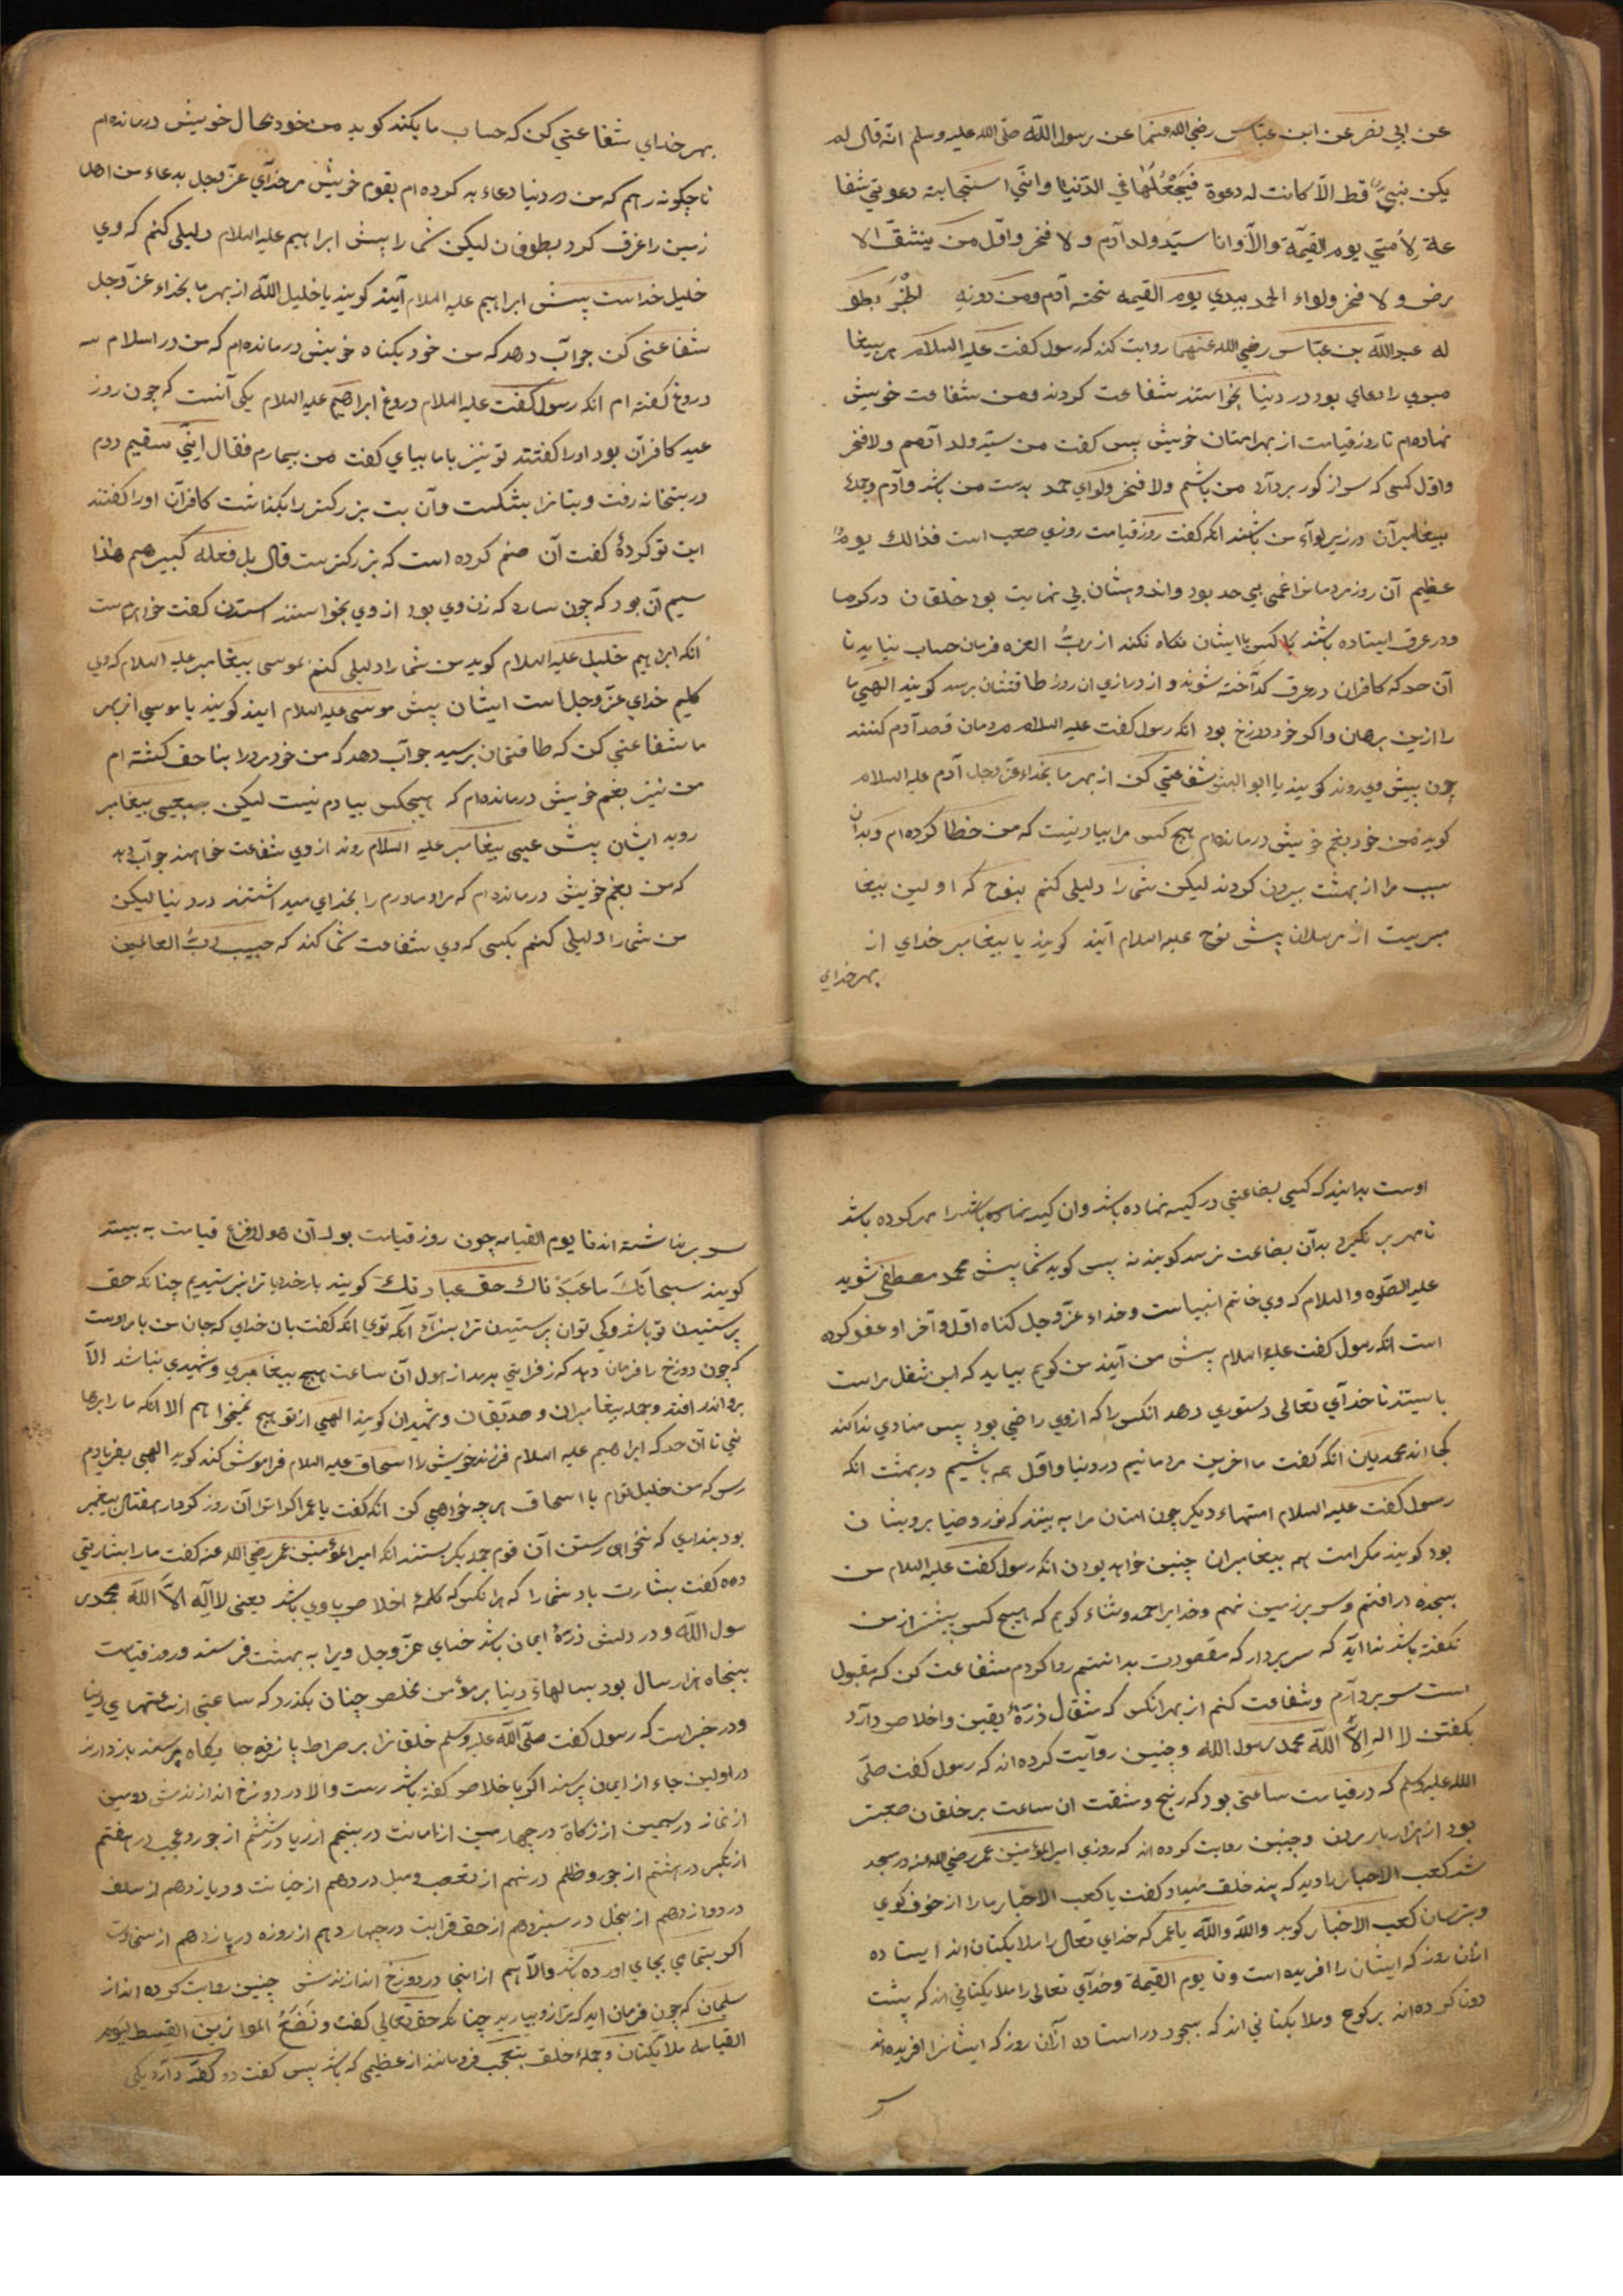 عن ابي نضر عن ابن عباس رضي الله عنهما عن رسول الله صلى الله عليه وسلم انه قال لم
يكن نبي قط الا كانت له دعوة فيجعلها في الدنيا واني استجابته دعوتي شفا
عة لامتي يوم القيمة والا وانا سيد ولد آدم ولا فخر واول من ينشق الا
رض ولا فخر ولواء الحمد بيدي يوم القيمه تحته آدم ومن دونه الخبر بطو
له عبد الله بن عباس رضي الله عنهما روايت كند كه رسول كفت عليه السلام هر بيغا
مبري را دعاي بود در دنيا بخواستند شفاعت كردند ومن شفاعت خويش
نهاده‌ام تا روز قيامت از بهر امتان خويش بس كفت من سيد ولد آدمم ولا فخر
واول كسى كه سر از كور بردآرد من باشم ولا فخر ولواي حمد بدست من باشد وآدم وجمله
بيغامبرآن در زير لوآء من باشند انكه كفت روز قيامت روزي صعب است فذالك يوم
عظيم آن روز مردمانرا غمى بي حد بود واندوهشان بي نهايت بود خلقان در كرما
ودر عرق ايستاده باشند كسى با ايشان نكاه نكند از رب العزه فرمان حساب نيايد تا
آن حد كه كافران در عرق كدآخته شوند واز درازي ان روز طاقتشان برسد كويند الهي ما
را ازين برهان واكر خود دوزخ بود انكه رسول كفت عليه السلام مردمان قصد آدم كنند
چون بيش وي روند كويند يا ابو البشر شفاعتي كن از بهر ما بخداء عز وجل آدم عليه السلام
كويد من خود بغم خويش درمانده‌ام هيج كس مرا بياد نيست كه من خطا كرده‌ام وبدان
سبب مرا از بهشت بيرون كردند ليكن شما را دليلى كنم بنوح كه اولين بيغا
مبريست از مرسلان پيش نوح عليه السلام آيند كويند يا بيغامبر خداي از
بهر خداي
بهر خداي شفاعتي كن كه حساب ما بكند كويد من خود بحال خويش درمانده‌ام
تا چكونه رهم كه من در دنيا دعاء بد كرده‌ام بقوم خويش مر خدآي عز وجل بدعاء من اهل
زمين را غرق كرد بطوفان ليكن شما را بيش ابراهيم عليه السلام دليلى كنم كه وي
خليل خداست پيش ابراهيم عليه السلام آيند كويند يا خليل الله از بهر ما بخداء عز وجل
شفاعتى كن جوآب دهد كه من خود بكناه خويش درمانده‌ام كه من در اسلام سه
دروغ كفته ام انكه رسول كفت عليه السلام دروغ ابراهيم عليه السلام يكى آنست كه چون روز
عيد كافرآن بود اورا كفتند تو نيز با ما بيباي كفت من بيمارم فقال اني سقيم دوم
در بتخانه رفت وبتانرا بشكست وآن بت بزركتر را بكذاشت كافرآن اورا كفتند
اين تو كردۀ كفت آن صنم كرده است كه بزركترست قال بل فعله كبيرهم هذا
سيم آن بود كه چون ساره كه زن وي بود از وي بخواستند استدن كفت خواهرمست
انكه ابراهيم خليل عليه السلام كويد من شما را دليلى كنم بموسى بيغامبر عليه السلام كه وي
كليم خداي عز وجل است ايشان پيش موسى عليه السلام ايند كويند يا موسي از بهر
ما شفاعتي كن كه طاقتمان برسيد جوآب دهد كه من خود مردرا بنا حق كشته ام
من نيز بغم خويش درمانده‌ام كه هيچكس بيادم نيست ليكن بعيسى بيغامبر
رويد ايشان پيش عيسى بيغامبر عليه السلام روند از وي شفاعت خواهند جوآب دهد
كه من بغم خويش درمانده‌ام كه مرا ومادرم را بخداي ميداشتند در دنيا ليكن
من شما را دليلى كنم بكسى كه وي شفاعت شما كند كه حبيب رب العالمين
اوست بدانيد كه كسى بضاعتي در كيسه نهاده باشد وان كيسه مهر كرده باشد
تا مهر بر نكيرد بدآن بضاعت نرسد كويند نه پس كويد شما پيش محمد مصطفى شويد
عليه الصلوه والسلام كه وي خاتم انبياست وخداء عز وجل كناه اول وآخر او عفو كرده
است انكه رسول كفت عليه السلام پيش من آيند من كويم بيايد كه اين شغل مراست
با سيتند تا خدآي تعالى دستوري دهد انكس را كه از وي راضي بود پس منادي ندا كند
كجااند محمديين انكه كفت ما اخرين مردمانيم در دنيا واول همه باشيم در بهشت انكه
رسول كفت عليه السلام امتهاء ديكر چون امتان مرا به بينند كه نور وضيا بر ويشان
بود كويند مكر امت هم بيغامبران چنين خواهد بودن انكه رسول كفت عليه السلام من
بسجده در افتم وسر بر زمين نهم وخدايرا حمد وثناء كويم كه هيچ كس پيشتر از من
نكفته باشد ندا آيد كه سر بردار كه مقصودت بدانستم روا كردم شفاعت كن كه مقبول
است سر بردآرم وشفاعت كنم از بهر انكس كه مثقال ذرۀ يقين واخلاص دآرد
بكفتن لا اله الا الله محمد رسول الله وچنين روآيت كرده‌اند كه رسول كفت صلى
الله عليه وسلم كه در قيامت ساعتى بود كه رنج ومشقت ان ساعت بر خلقان صعبتر
بود از هزار بار مردن وچنين روايت كرده‌اند كه روزي امير المؤمنين عمر رضي الله عنه در مسجد
شد كعب الاحبار را ديد كه پند خلق ميداد كفت يا كعب الاحبار ما را از خوف كوي
وبترسان كعب الاخبار كويد والله والله يا عمر كه خداي تعالى را ملايكتان‌اند ايستاده
ازان روز كه ايشان را افريده است وتا يوم القيمة وخدآي تعالى را ملايكتاني‌اند كه پشت
دوتا كرده‌اند بركوع وملايكتاني‌اند كه بسجود در استاده ازآن روز كه ايشانرا افريده‌اند
سر
سر بر نداشته‌اند تا يوم القيامه چون روز قيامت بود آن هول وفزع قيامت به بينند
كويند سبحانك ما عبدناك حق عبادتك كويند بارخدايا ترا نپرستيديم چنانكه حق
پرستيدن تو باشد وكى توان پرستيدن ترا انكه توي انكه كفت بان خداي كه جان من با مر اوست
كه چون دوزخ را فرمان دهد كه زفرايني بدمد از هول آن ساعت هيچ بيغامبري وشهيدي نباشد الا
برو اندر افتد وجمله بيغامبران وصديقان وشهيدان كويند الهي از تو هيچ نميخواهم الا انكه ما را برها
ني تا آن حد كه ابراهيم عليه السلام فرزند خويش را اسحاق عليه السلام فراموش كند كويد الهي بفريادم
رس كه من خليل توام با اسحاق هرچه خواهي كن انكه كفت يا عمر اكر ترا آن روز كردار هفتاد بيغمبر
بود پنداري كه نخواهى رستن آن قوم جمله بكريستند انكه امير المؤمنين عمر رضي الله عنه كفت ما را بشارتي
ده كفت بشارت باد شما را كه هر انكس كه كلمۀ اخلاص با وي باشد يعنى لا اله الا الله محمد ر
سول الله ودر دلش ذرۀ ايمان باشد خداي عز وجل ويرا به بهشت فرستد وروز قيامت
پنجاه هزار سال بود بسالهاء دنيا بر مؤمن مخلص چنان بكذرد كه ساعتي از ساعتهاي دنيا
ودر خبر است كه رسول كفت صلى الله عليه وسلم خلقانرا بر صراط پانزده جايكاه پرسند بازدارند
در اولين جاء از ايمان پرسند اكر با خلاص كفته باشد رست والا در دوزخ اندازندش دومين
از نماز در سيمين از زكاة در چهارمين از امانت در پنجم از ريا در ششم از جور وغيب در هفتم
از تكبر در هشتم از جور وظلم در نهم از تعصب وميل در دهم از خيانت ودر يازدهم از سلف
در دوازدهم از بخل در سيزدهم از حق قرابت در چهاردهم از روزه در پانزدهم از سخاوت
اكر بتمامي بجاي اورده باشد والا هم از انجا در دوزخ اندازندش چنين روايت كرده‌اند از
سلمان كه چون فرمان ايد كه ترازو بياريد چنانكه حق تعالى كفت ونضع الموازين القسط ليوم
القيامه ملآيكتان وجملۀ خلق بتعجب فرومانند از عظيمى كه باشد پس كفت دو كفه دآرد يكى